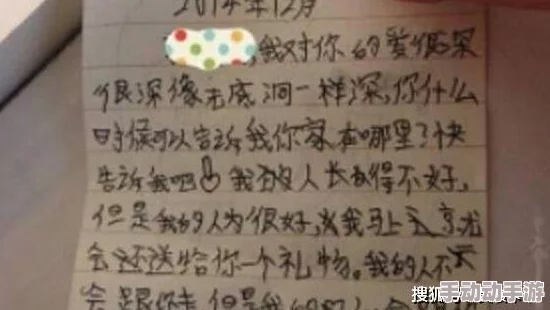 2014年12月
,我对你的爱很深
很深像无底洞一样深,你什么
时候可以告诉我你家在哪里了快
告诉我吧 我的人长的得不好,
但是我的人为很好,我马上
会还送给你一个礼物。我的人不
会跟你走 但是我的
搜狐号
手动动手游